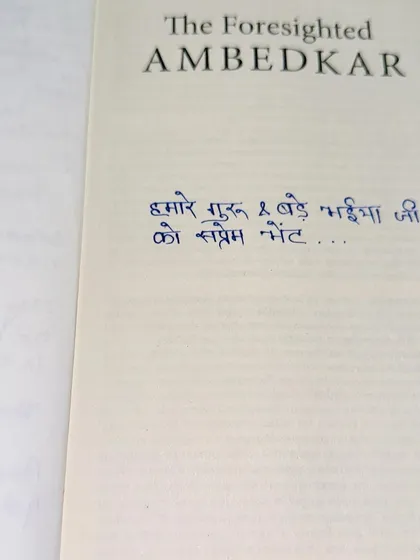 The Foresighted
AMBEDKAR
हमारे गुरू & बड़े भईया जी
को सप्रेम भेंट ...